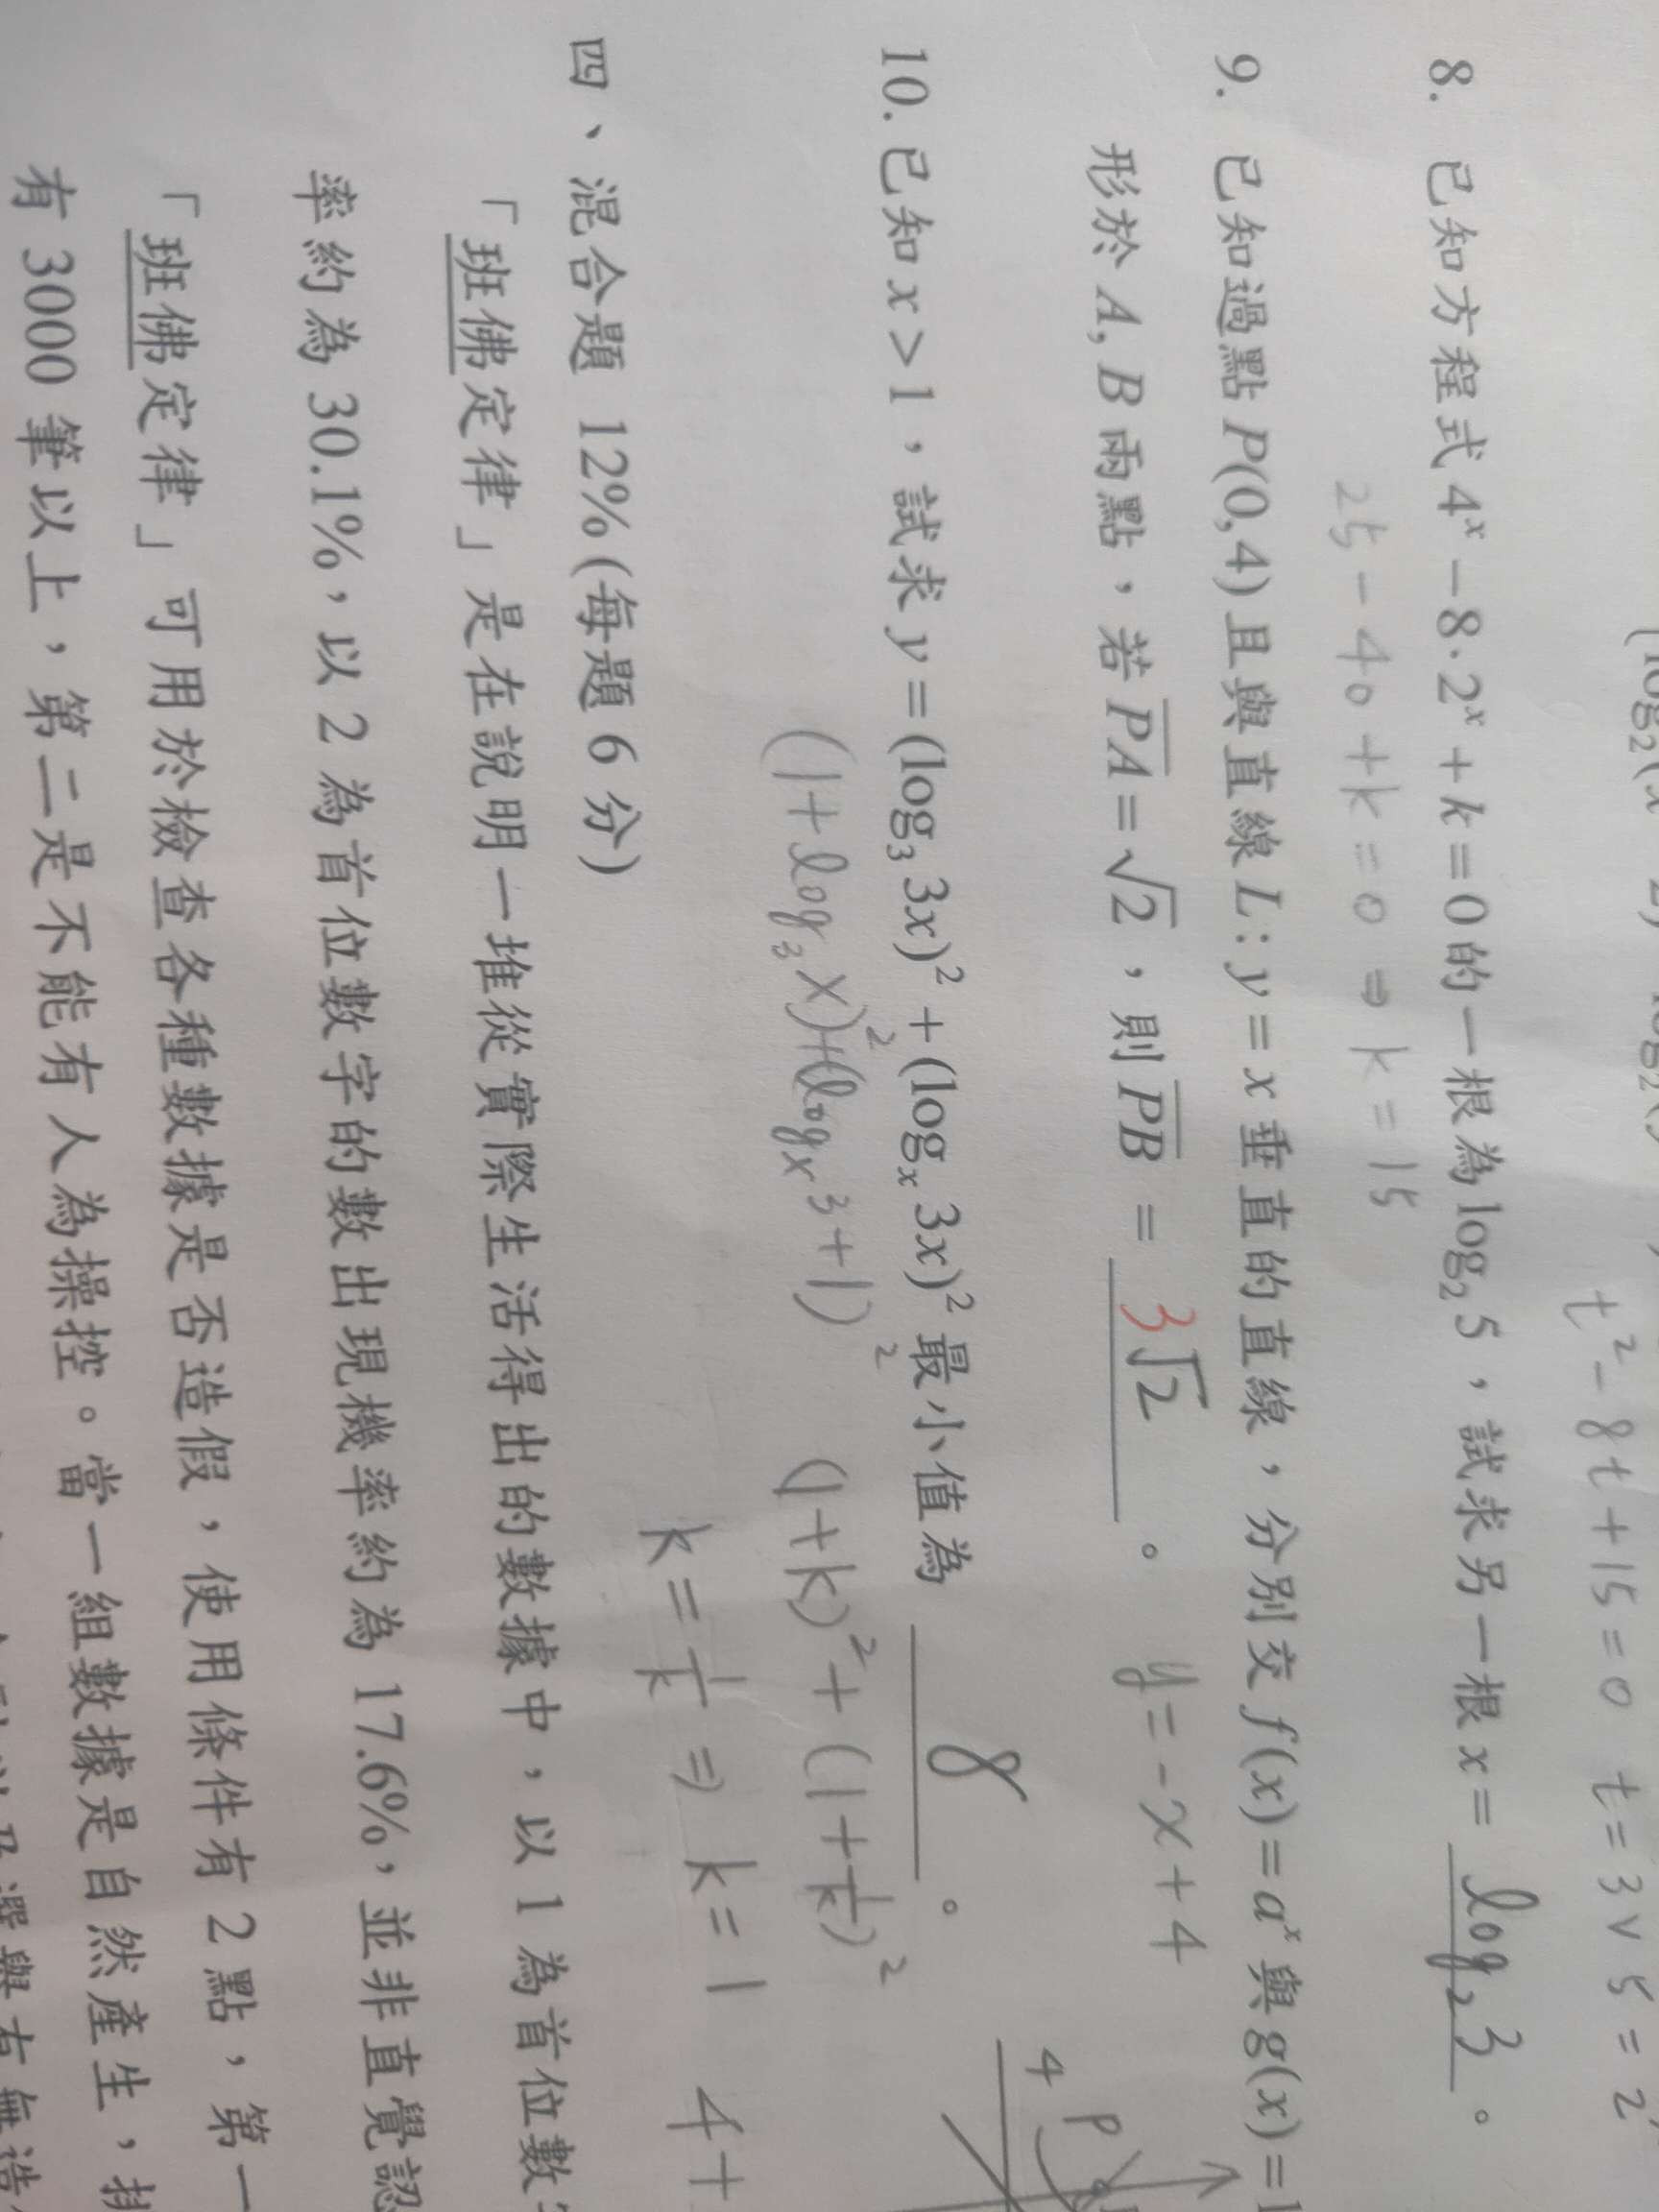 t² - 8t + 15 = 0 t = 3 ∨ 5 = 2
8. 已知方程式 4ˣ - 8·2ˣ + k = 0 的一根為 log₂ 5,試求另一根 x = log₂ 3 。
25 - 40 + k = 0 ⇒ k = 15
9. 已知過點 P(0,4) 且與直線 L: y = x 垂直的直線,分別交 f(x) = aˣ 與 g(x) = l
形於 A, B 兩點,若 PA = √2,則 PB = 3√2 。 y = -x + 4
4 P
10. 已知 x > 1,試求 y = (log₃ 3x)² + (logₓ 3x)² 最小值為 8 。
(1 + log₃ x)² + (logₓ 3 + 1)² (1+k)² + (1 + 1/k)²
k = 1/k ⇒ k = 1 4+
四、混合題 12% (每題 6 分)
「班佛定律」是在說明一堆從實際生活得出的數據中,以 1 為首位數
率約為 30.1%,以 2 為首位數字的數出現機率約為 17.6%,並非直覺認
「班佛定律」可用於檢查各種數據是否造假,使用條件有 2 點,第一
有 3000 筆以上,第二是不能有人為操控。當一組數據是自然產生,